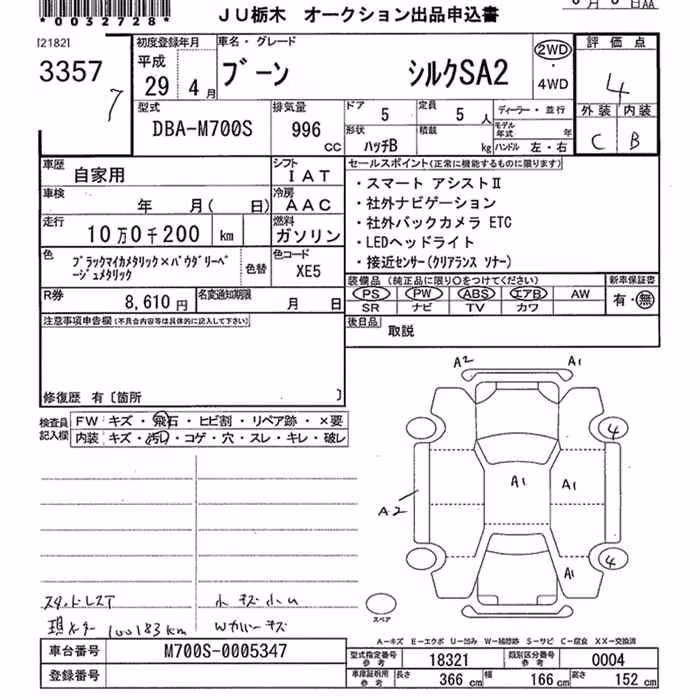 *0032728*
JU栃木 オークション出品申込書
[2182]
3357
7
初度登録年月
平成
29年4月
車名・グレード
ブーン シルクSA2
2WD
・
4WD
評価点
4
外装 内装
C B
型式
DBA-M700S
排気量
996
CC
ドア
5
定員
5人
ディーラー・並行
モデル年式 年
形状
ハッチB
積載
kg
ハンドル 左・右
車歴
自家用
シフト
IAT
車検
年 月( 日)
冷房
AAC
走行
10万0千200 km
燃料
ガソリン
色
ブラックマイカメタリック×パウダリーベージュメタリック
色替
色コード
XE5
R券
8,610円
名変通知期限
月 日
セールスポイント(正常に機能するものに限ります)
・スマート アシストⅡ
・社外ナビゲーション
・社外バックカメラ ETC
・LEDヘッドライト
・接近センサー(クリアランス ソナー)
装備品(純正品に限り○をつけてください)
PS PW ABS エアB AW
SR ナビ TV カワ
新車保証書
有・無
後日品
取説
注意事項申告欄(不具合内容等は具体的に記入して下さい)
修復歴 有〔箇所 〕
検査員
記入欄
FW キズ・飛石・ヒビ割・リペア跡・×要
内装 キズ・汚れ・コゲ・穴・スレ・キレ・破レ
A2 A1
4
A1 A1
A2
4
A1
スペア
小キズ小凹
現メーター 100183km
Wカバーキズ
A-キズ E-エクボ U-凹み W-補修跡 S-サビ C-腐食 XX-交換済
車台番号
M700S-0005347
登録番号
型式指定番号
参考
18321
類別区分番号
参考
0004
車庫証明用
参考
長さ 366 cm
幅 166 cm
高さ 152 cm